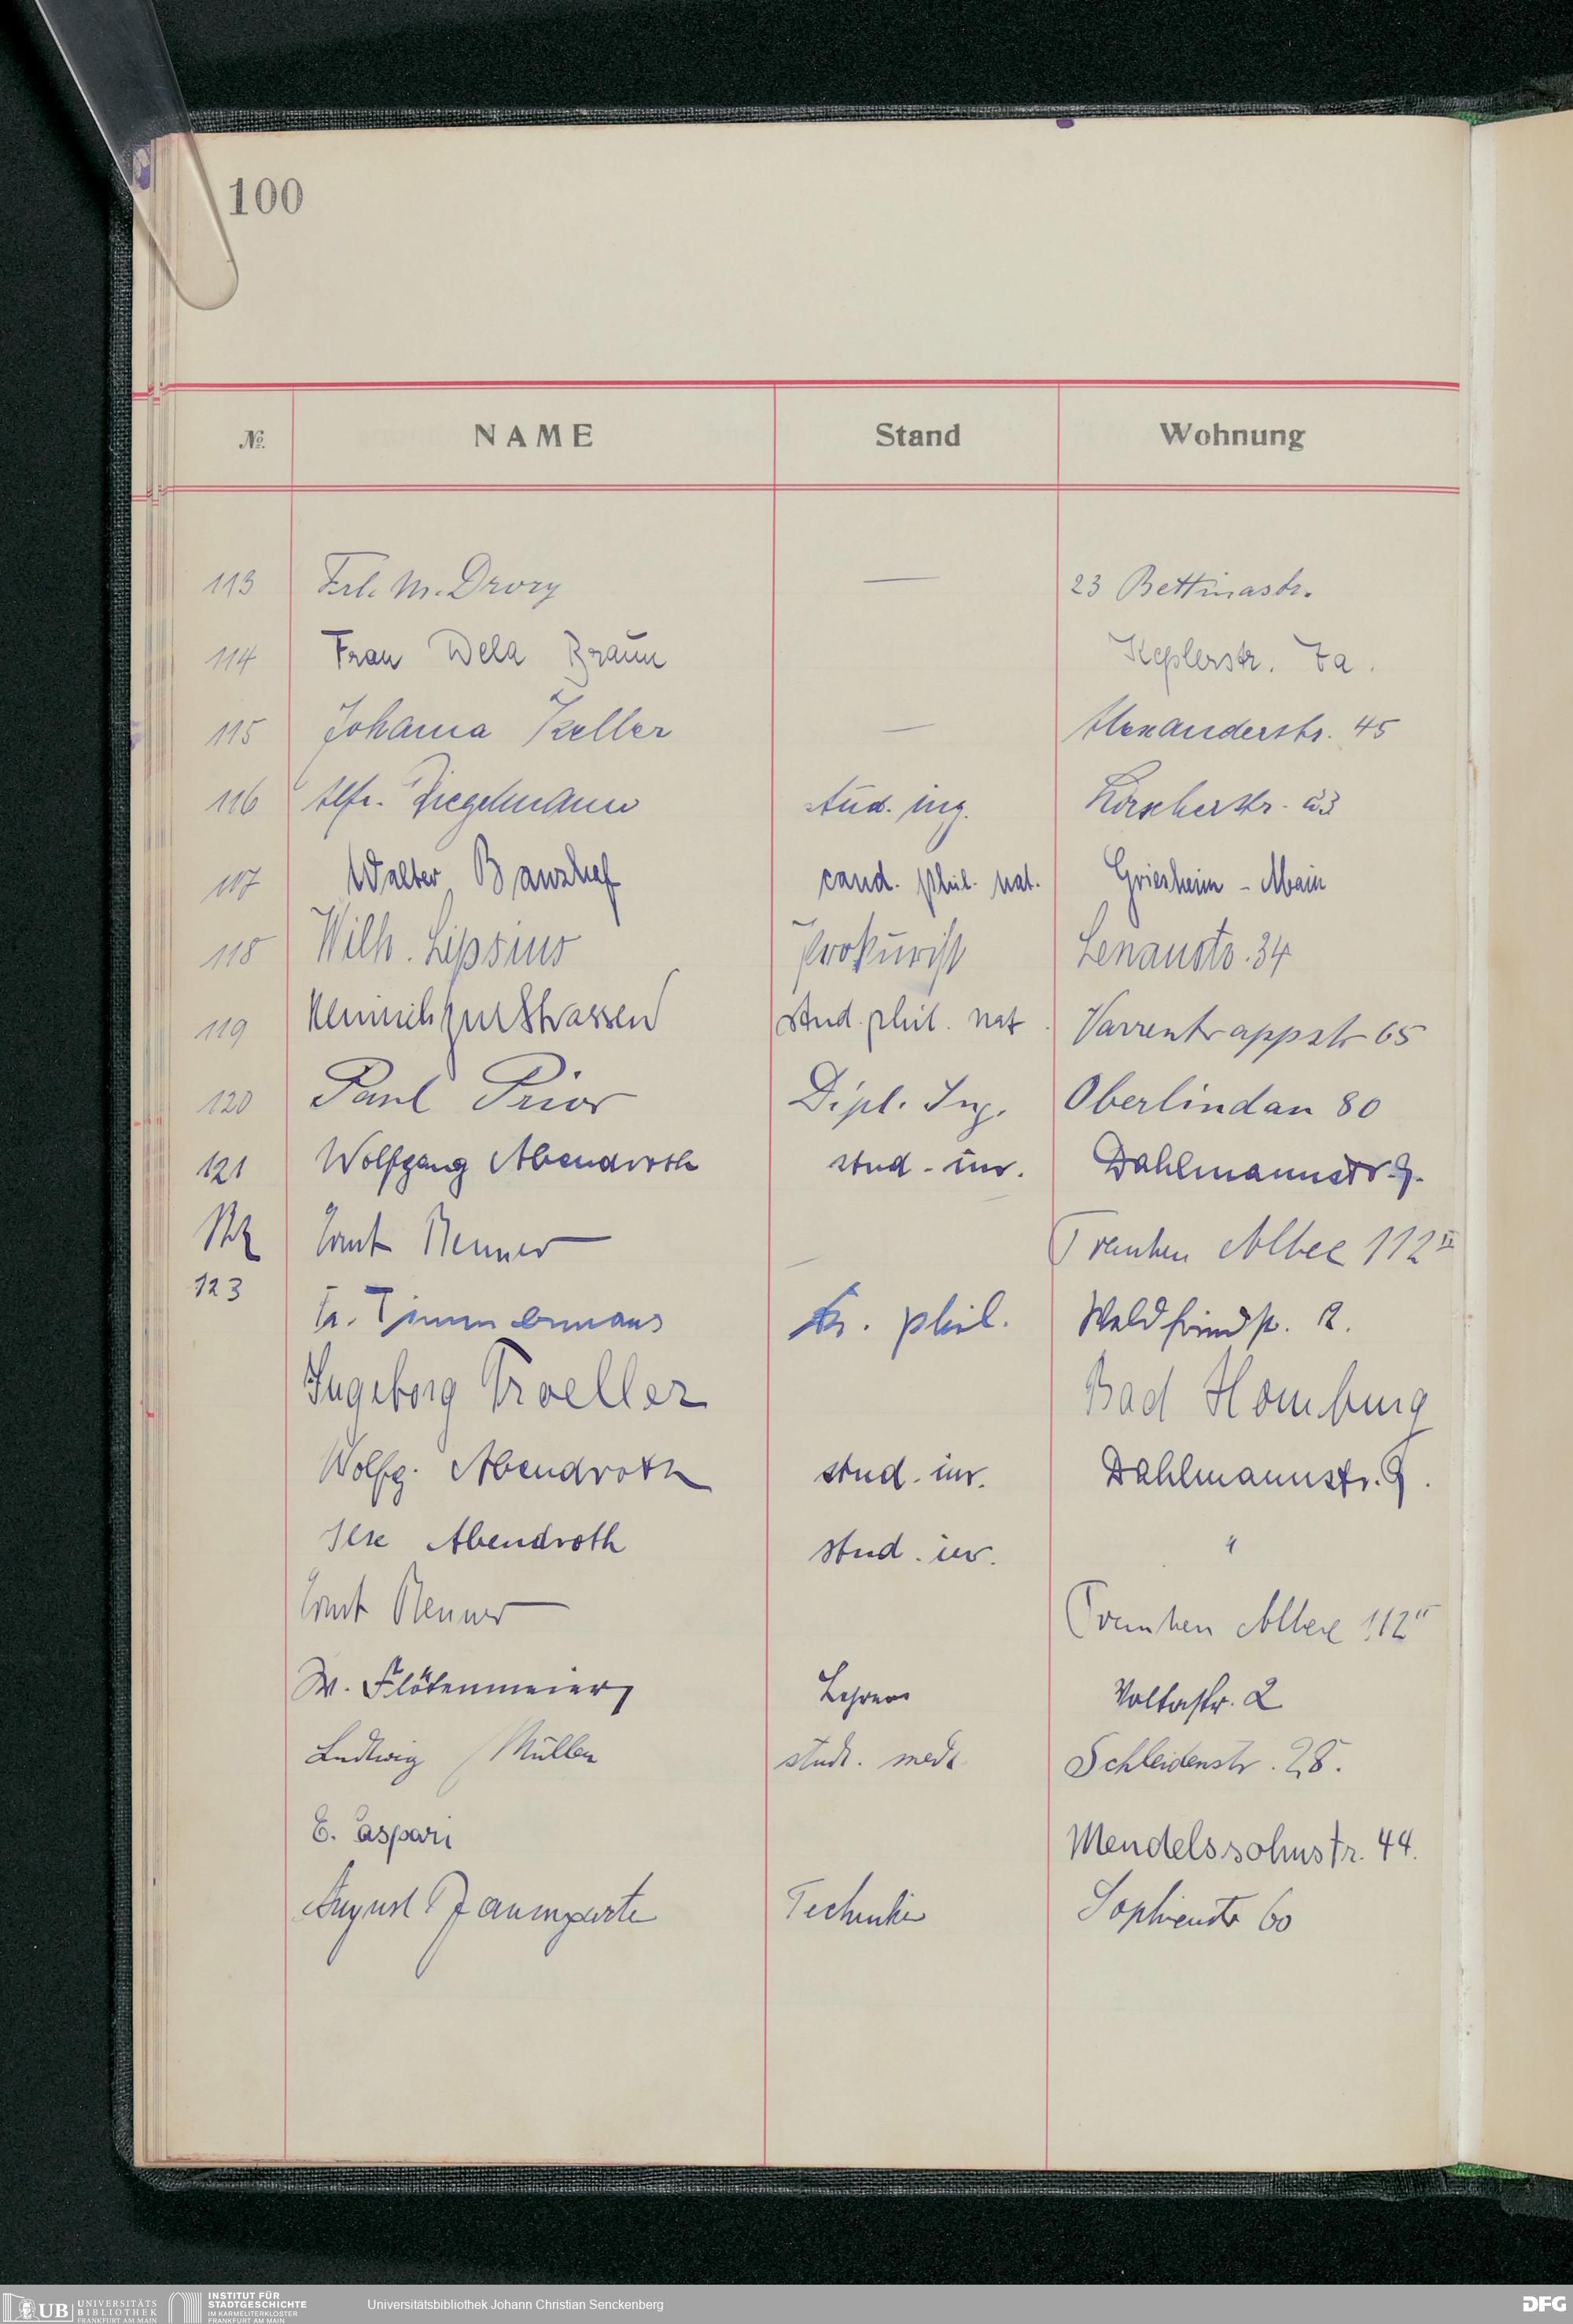 100
№ NAME Stand Wohnung
113 Frl. M. Drory — 23 Bettinastr.
114 Frau Dela Braun Keplerstr. 7a.
115 Johanna Keller — Alexanderstr. 45
116 Alfr. Ziegelmann stud. ing.
117 Walter Banzhaf cand. phil. nat. Griesheim - Main
118 Wilh. Lipsius Prokurist Lenaustr. 34
119 Heinrich zur Strassen stud. phil. nat. Varrentrappstr 65
120 Paul Prior Dipl. Ing. Oberlindau 80
121 Wolfgang Abendroth stud. iur. Dahlmannstr. 9.
Ernst Renner Allee 112 II
123
Timmermans Dr. phil. 2.
Ingeborg Troeller Bad Homburg
Wolfg. Abendroth stud. iur. Dahlmannstr. 9.
Ilse Abendroth stud. iur. "
Ernst Renner Allee 112 II
W. Flötenmeier, Lehrer Voltastr. 2
Ludwig Müller stud. med. Schleidenstr. 28.
E. Caspari Mendelssohnstr. 44.
August Baumgarte Techniker Sophienstr 60
UB UNIVERSITÄTS BIBLIOTHEK FRANKFURT AM MAIN
INSTITUT FÜR STADTGESCHICHTE IM KARMELITERKLOSTER FRANKFURT AM MAIN
Universitätsbibliothek Johann Christian Senckenberg
DFG